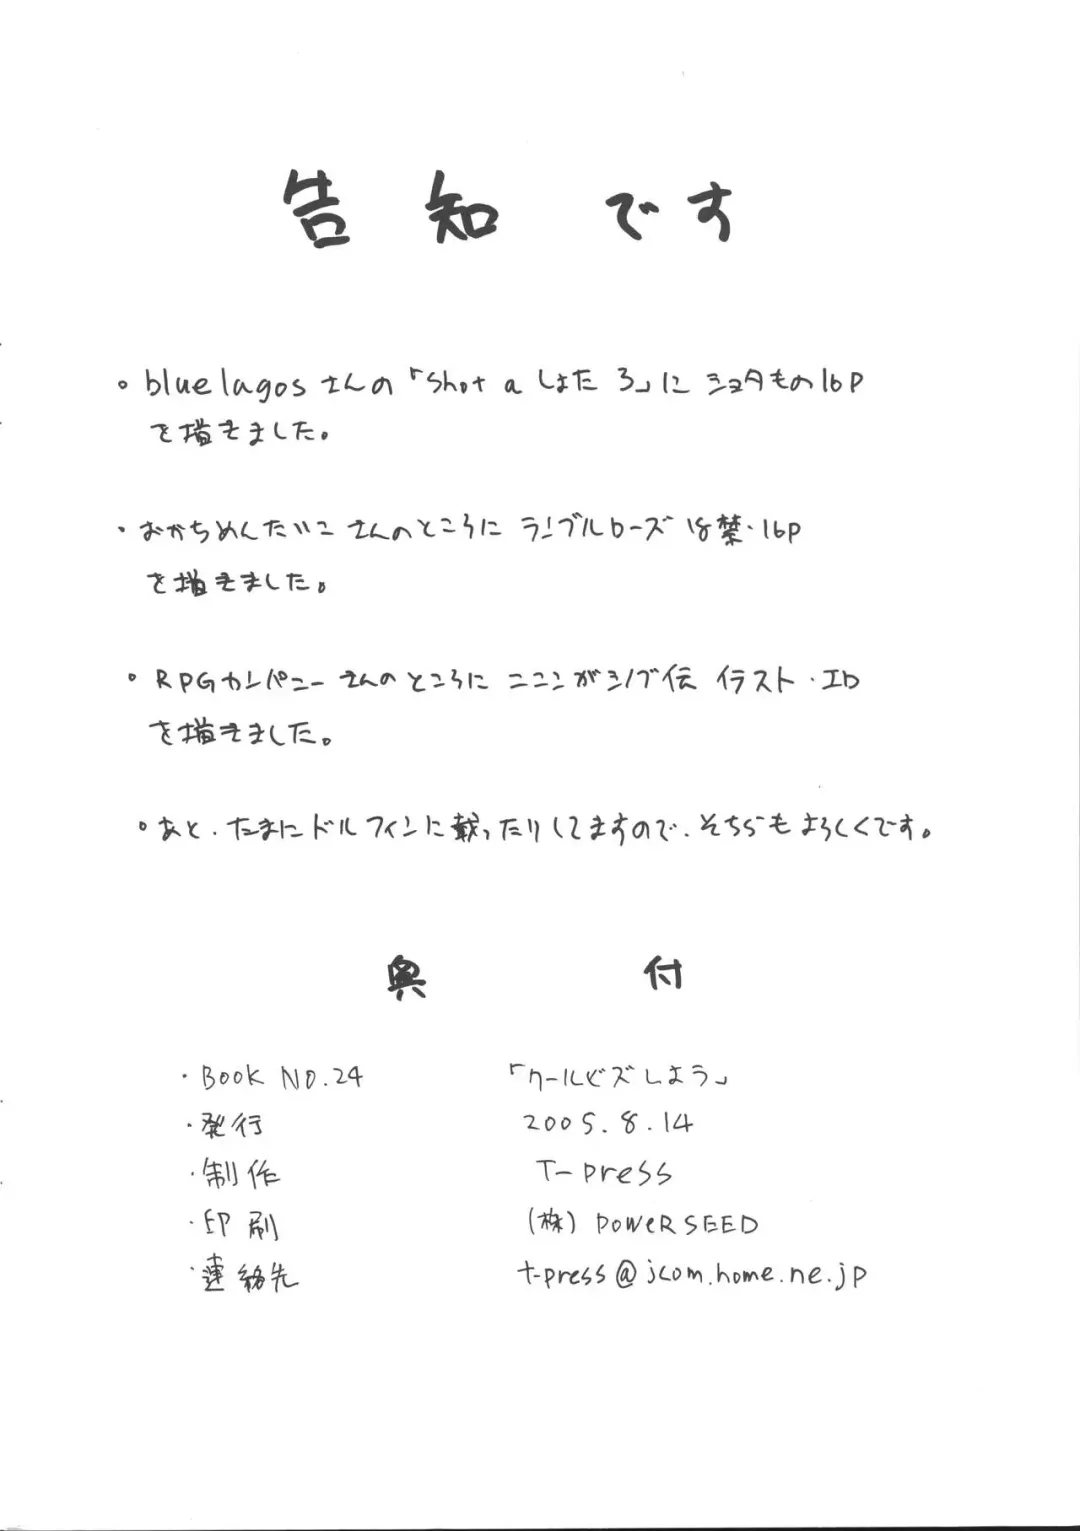 告知です
・bluelagosさんの「Shot a しょたろ」にショタもの16P
を描きました。
・おかちめんたいこさんのところにランブルローズ18禁・16P
を描きました。
・RPGカンパニーさんのところにニニンがシノブ伝イラスト・1P
を描きました。
・あと、たまにドルフィンに載ったりしてますので、そちらもよろしくです。
奥付
・BOOK NO.24 「クールビズしよう」
・発行 2005.8.14
・制作 T-press
・印刷 (株)POWERSEED
・連絡先 t-press@jcom.home.ne.jp